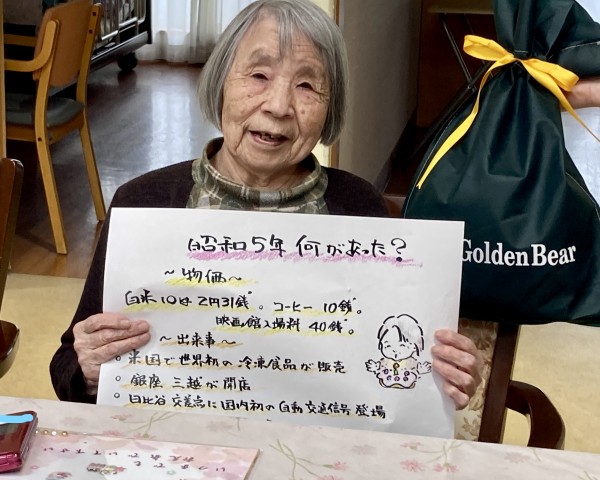 昭和5年 何があった?
~物価~
白米10kg 2円31銭。コーヒー 10銭。
映画館入場料 40銭。
~出来事~
• 米国で世界初の冷凍食品が販売
• 銀座 三越が開店
• 日比谷交差点に国内初の自動交通信号登場
Golden Bear
いつまでも